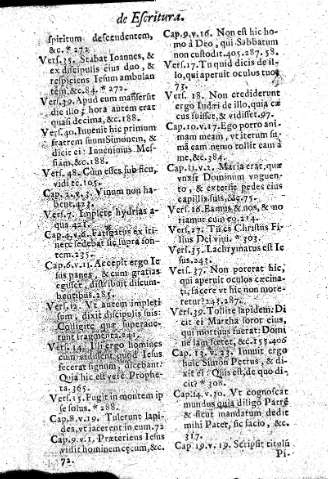 de Escritura.
spiritum descendentem,
&c. * 272.
Vers. 35. Stabat Ioannes, &
ex discipulis eius duo, &
respiciens Iesum ambulan
tem, &c. 84. * 272.
Vers. 39. Apud eum manserūt
die illo; hora autem erat
quasi decima, &c. 188.
Vers. 40. Inuenit hic primum
fratrem suum Simonem, &
dicit ei: Inuenimus Mes-
siam, &c. 188.
Vers. 48. Cùm esses sub ficu,
vidi te. 105.
Cap. 2. v. 3. Vinum non ha
bent. 423.
Vers. 7. Implete hydrias a-
qua. 421.
Cap. 4. v. 6. Fatigatus ex iti-
nere sedebat sic supra fon-
tem. 235.
Cap. 6. v. 11. Accepit ergo Ie
sus panes, & cum gratias
egisset, distribuit discum-
bentibus. 285.
Vers. 12. Vt autem impleti
sunt, dixit discipulis suis:
Colligite quæ superaue-
runt fragmenta. 243.
Vers. 14. Illi ergo homines
cum vidissent quod Iesus
fecerat signum, dicebant:
Quia hic est vere Prophe-
ta. 365.
Vers. 15. Fugit in montem ip
se solus. * 288.
Cap. 8. v. 19. Tulerunt lapi-
des, vt iacerent in eum. 72
Cap. 9. v. 1. Præteriens Iesus
vidit hominem cęcum, &c.
72.
Cap. 9. v. 16. Non est hic ho-
mo à Deo, qui Sabbatum
non custodit. 405. 287. 58.
Vers. 17. Tu quid dicis de il-
lo, qui aperuit oculos tuos?
73.
Vers. 18. Non crediderunt
ergo Iudæi de illo, quia cæ
cus fuisset, & vidisset. 97.
Cap. 10. v. 17. Ego pono ani-
mam meam, vt iterum su-
mā eam nemo tollit eam à
me, &c. 384.
Cap. 11. v. 2. Maria erat, quæ
vnxit Dominum vnguen-
to, & extersit pedes eius
capillis suis, &c. 75.
Vers. 16. Eamus & nos, & mo
riamur cum eo. 214.
Vers. 27. Tu es Christus Fi-
lius Dei viui. * 303.
Vers. 35. Lachrymatus est Ie
sus. 243.
Vers. 37. Non poterat hic,
qui aperuit oculos cæcina-
ti, facere vt hic non more-
retur? 243. 287.
Vers. 39. Tollite lapidem: Di
cit ei Martha soror eius,
qui mortuus fuerat: Domi
ne iam fœtet, &c. 153. 406
Cap. 13. v. 23. Innuit ergo
huic Simon Petrus, & di-
xit ei: Quis est, de quo di-
cit? * 308.
Cap. 14. v. 30. Vt cognoscat
mundus quia diligo Patrē
& sicut mandatum dedit
mihi Pater, sic facio, &c.
317.
Cap. 19. v. 19. Scripsit titulū
Pi-